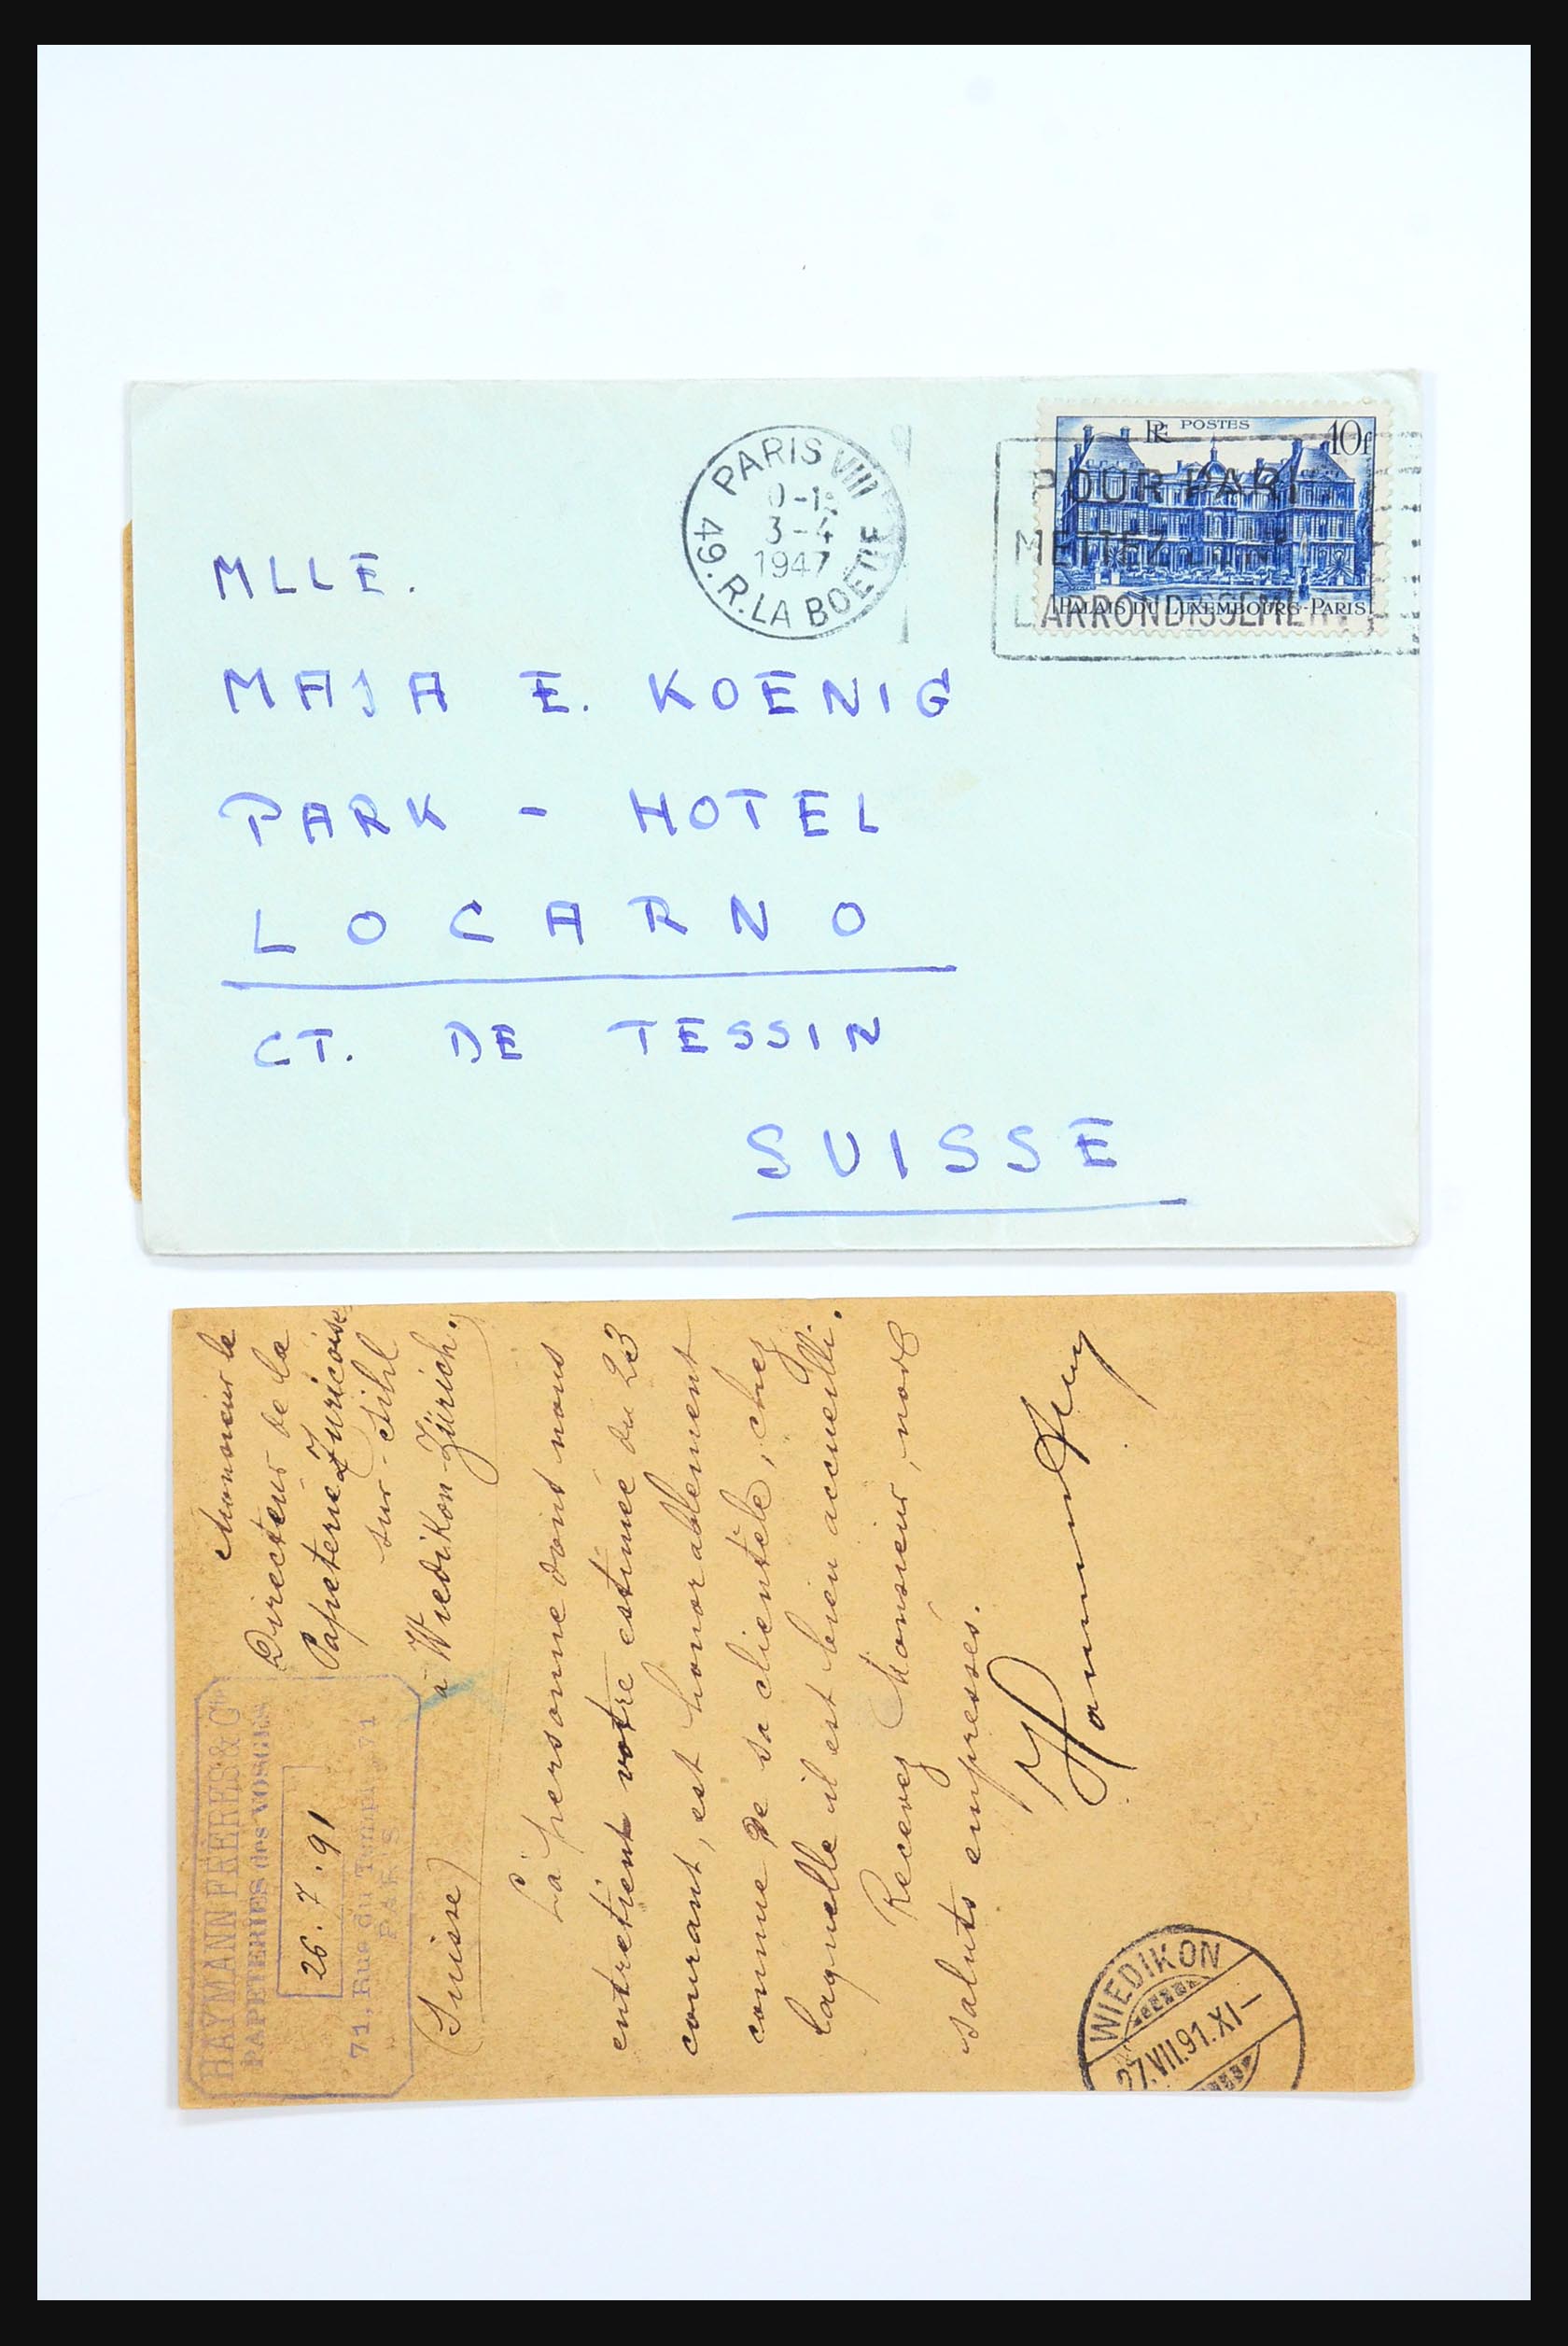 PARIS VIII
3-4
1947
49.R.LA BOETIE
RF POSTES 10f
POUR PARI
METTEZ
L'ARRONDISSEMENT
PALAIS DU LUXEMBOURG-PARIS
MLLE.
MAJA E. KOENIG
PARK - HOTEL
LOCARNO
CT. DE TESSIN
SUISSE
HAYMANN FRÈRES & Cie
PAPETERIES des VOSGES
26.7.91
71, Rue du Temple, 71
PARIS
Monsieur le
Directeur de la
Papeterie Zuricoise
sur-Sihl
à Wiedikon-Zürich.
(Suisse)
La personne dont nous
entretient votre estimée du 23
courant, est honorablement
connue de sa clientèle, chez
laquelle il est bien accueilli.
Recevez Monsieur, nos
saluts empressés.
WIEDIKON
27.VII.91.XI-